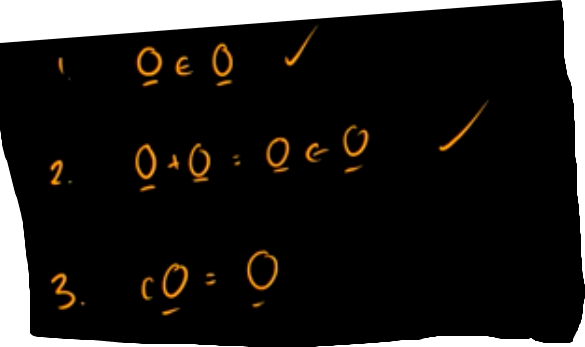 1. 0̲ ∈ 0̲ ✓
2. 0̲ + 0̲ = 0̲ ∈ 0̲ ✓
3. c0̲ = 0̲